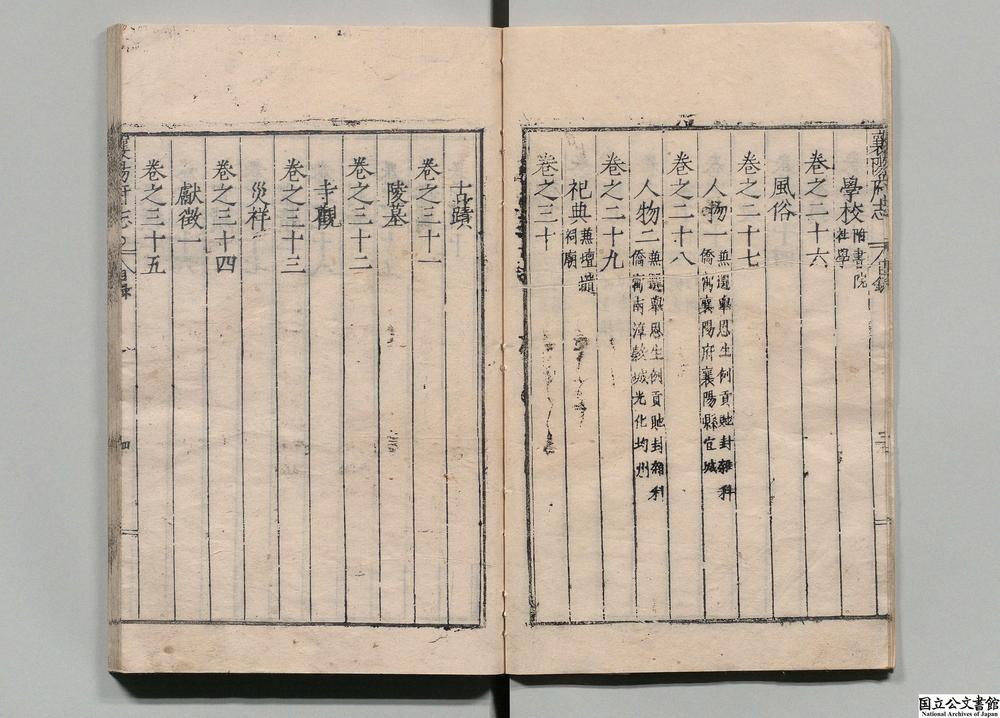 襄陽府志 目錄
學校 附書院社學
卷之二十六
風俗
卷之二十七
人物一 兼選舉恩生例貢貤封雜科僑寓襄陽府襄陽縣宜城
卷之二十八
人物二 兼選舉恩生例貢貤封雜科僑寓南漳穀城光化均州
卷之二十九
祀典 兼壇𨻶祠廟
卷之三十
古蹟
卷之三十一
陵墓
卷之三十二
寺觀
卷之三十三
災祥
卷之三十四
獻徵一
卷之三十五
襄陽府志 目錄 四
国立公文書館
National Archives of Japan